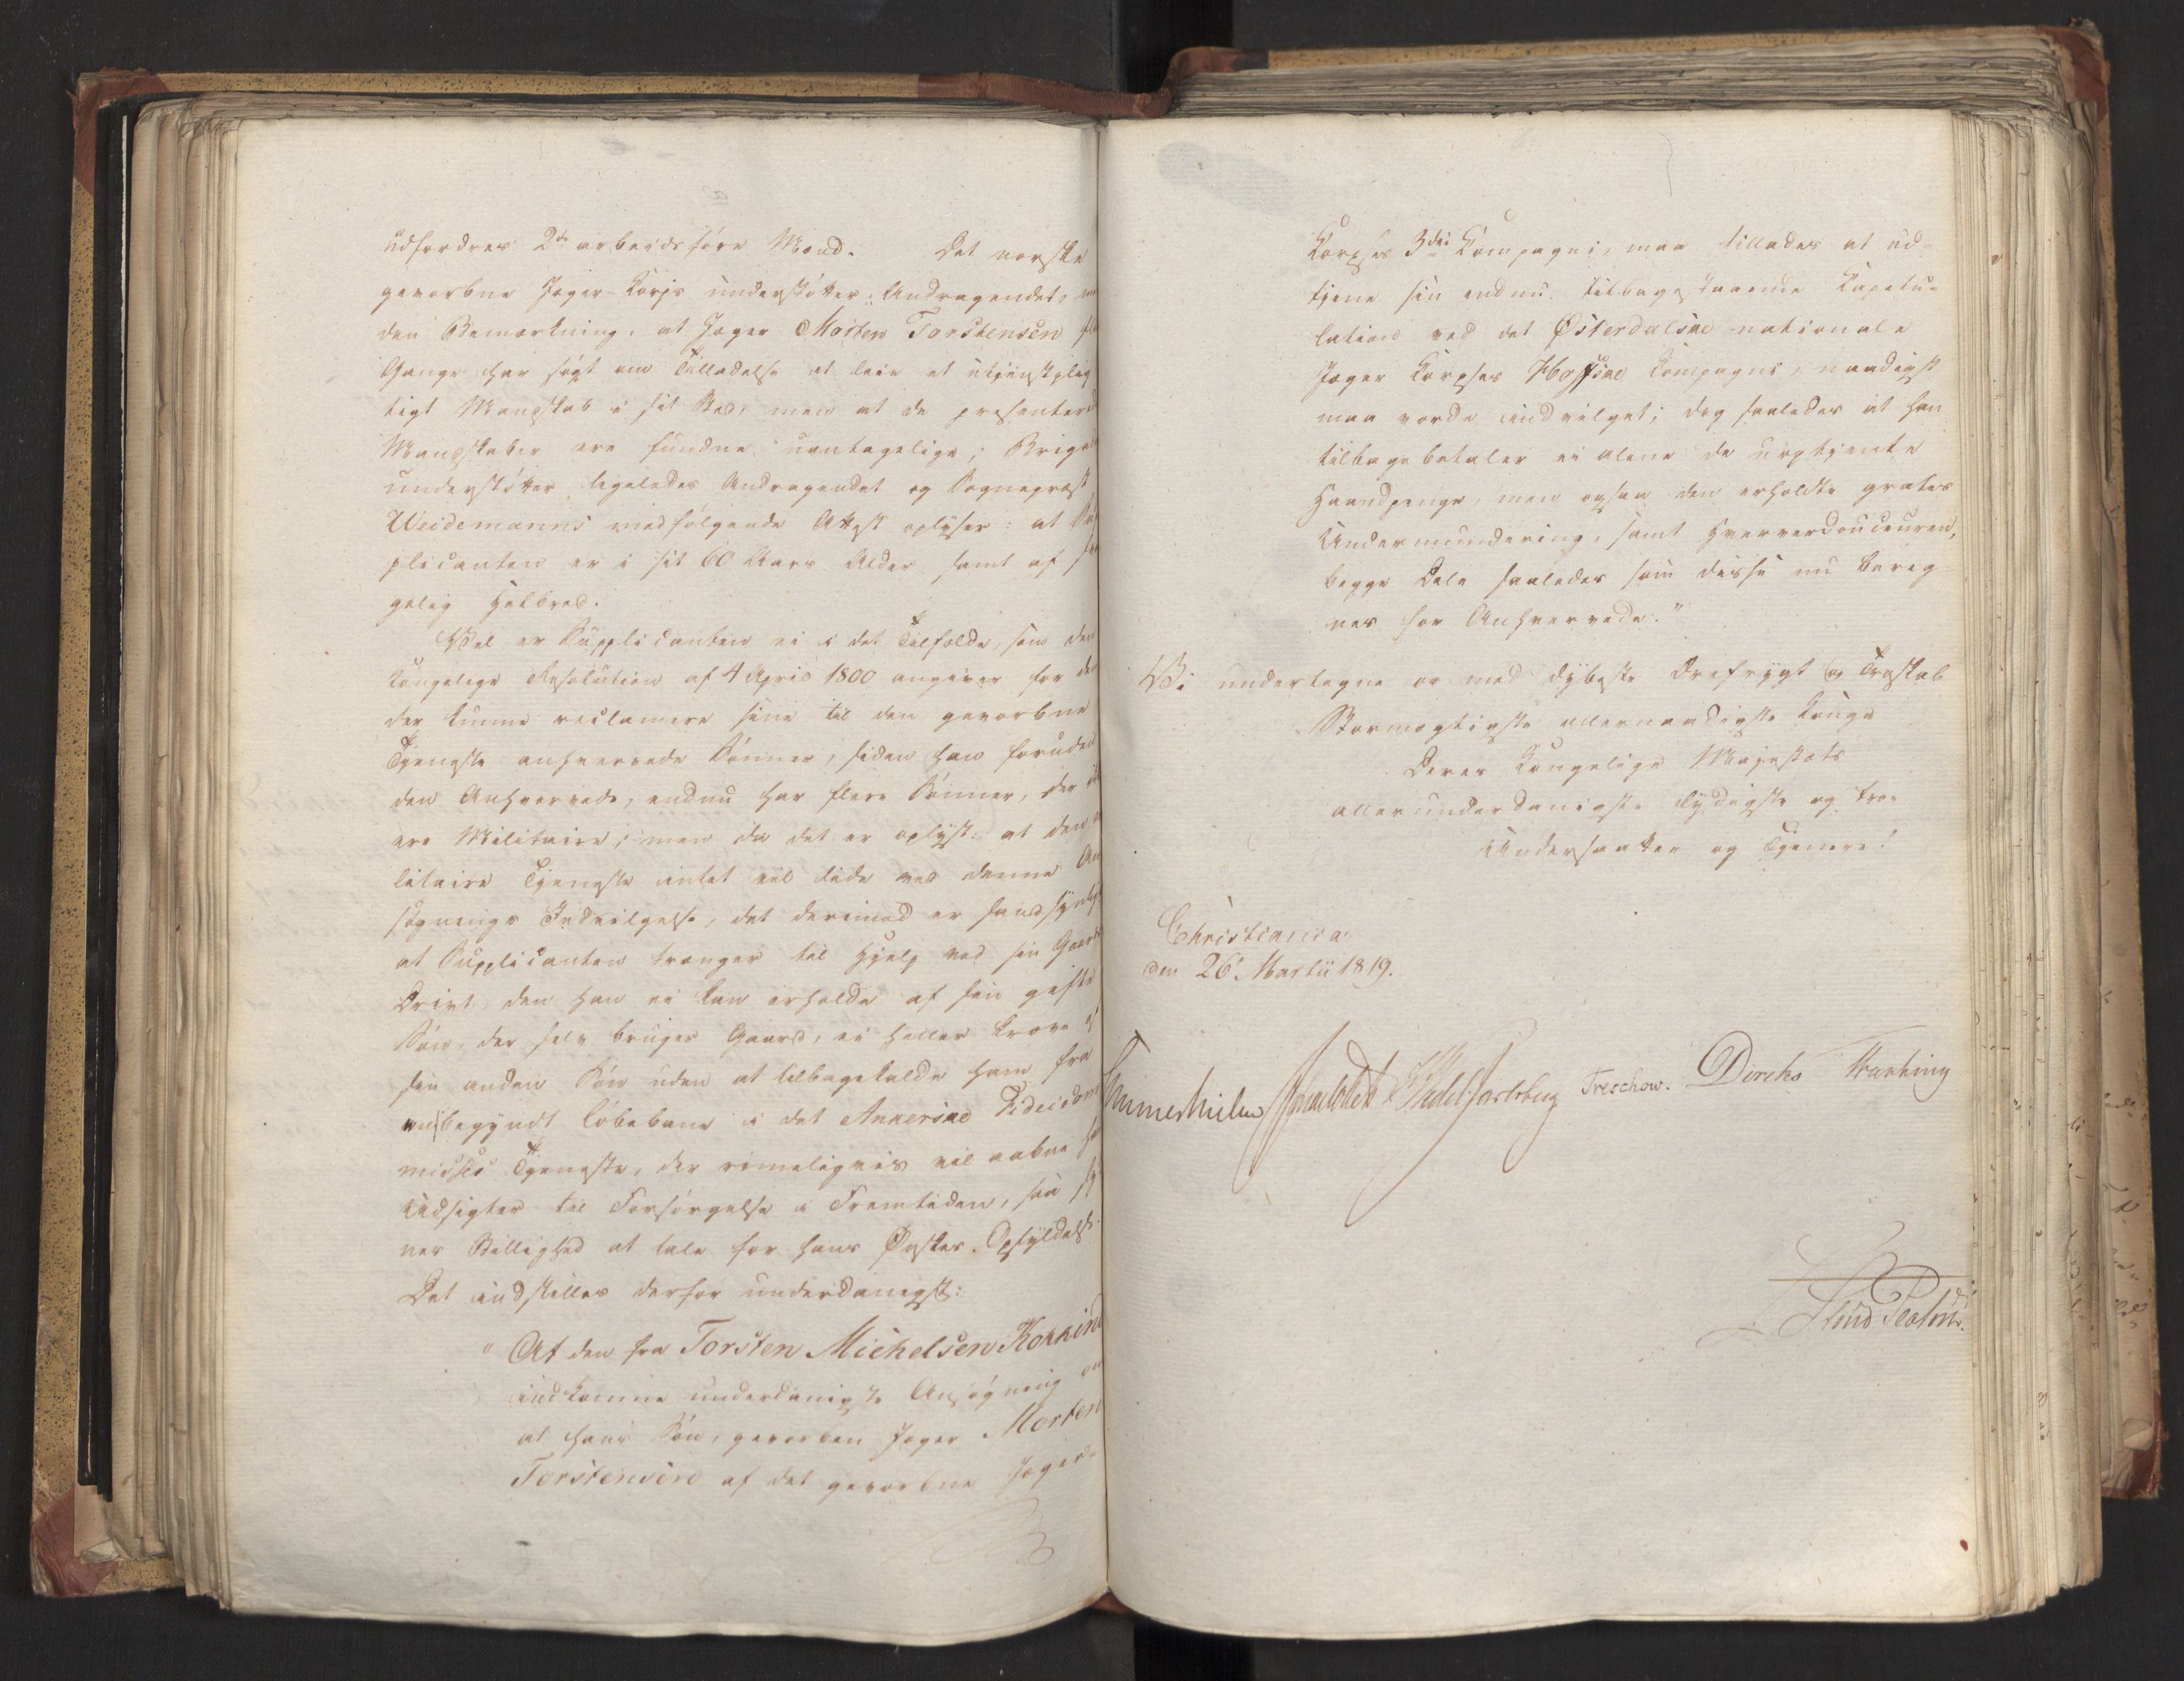 udfordres 2de arbeidsføre Mænd. Det norske
gevorbne Jæger-Korps understøtter Andragendet, med
den Bemærkning, at Jæger Morten Torstensen
Gange har søgt om Tilladelse at leie et utjenstplig
tigt Mandskab i sit Sted, men at de præsenterede
Mandskaber ere fundne uantagelige; Brigaden
understøtter ligeledes Andragendet og Sognepræst
Weidemanns medfølgende Attest oplyser: at Sup
plicanten er i sit 60 Aars Alder samt af
gelig Helbred.
Vel er Supplicanten ei i det Tilfælde, som den
Kongelige Resolution af 4 April 1800 angiver for dem
der kunne reclamere sine til den gevorbne
Tjeneste anhvervede Sønner, siden han foruden
den Anhvervede, endnu har flere Sønner, der ei
ere Militaire; men da det er oplyst: at den mi
litaire Tjeneste intet vil lide ved denne An
søgnings Indvilgelse, det derimod er sandsynligt
at Supplicanten trænger til Hjelp ved sin Gaards
Drivt, den han ei kan erholde af sin gifte
Søn, der selv bruger Gaard, ei heller kræve af
sin anden Søn uden at tilbagekalde ham fra
en begyndt Løbebane i det Ankerske Fideicom
misses Tjeneste, der rimeligviis vil aabne ham
Udsigter til Forsørgelse i Fremtiden, saa sy
nes Billighed at tale for hans Ønskes Opfyldelse.
Det indstilles derfor underdanigst:
"At den fra Torsten Michelsen Kokkind
indkomne underdanigste Ansøgning om
at hans Søn, gevorben Jæger Morten
Torstensen af det gevorbne Jæger-
Korpses 3die Kompagni, maa tillades at ud-
tjene sin endnu tilbagestaaende Kapitu-
lation ved det Østerdalske nationale
Jæger Korpses Hoffske Kompagni, naadigst
maa vorde indvilget; dog saaledes at han
tilbagebetaler ei alene de uoptjente
Haandpenge, men ogsaa den erholdte gratis
Undermundering, samt Hververdouceuren,
begge Dele saaledes som disse nu bereg-
nes for Anhvervede."
Vi undertegne os med dybeste Ærefrygt og Troskab
Stormægtigste allernaadigste Konge
Deres Kongelige Majestæts
allerunderdanigste lydigste og troe
Undersaatter og Tjenere!
Christiania
den 26 Martii 1819.
Sommerhielm Hmotzfeldt Wedel Jarlsberg Treschow. Diriks Fasting